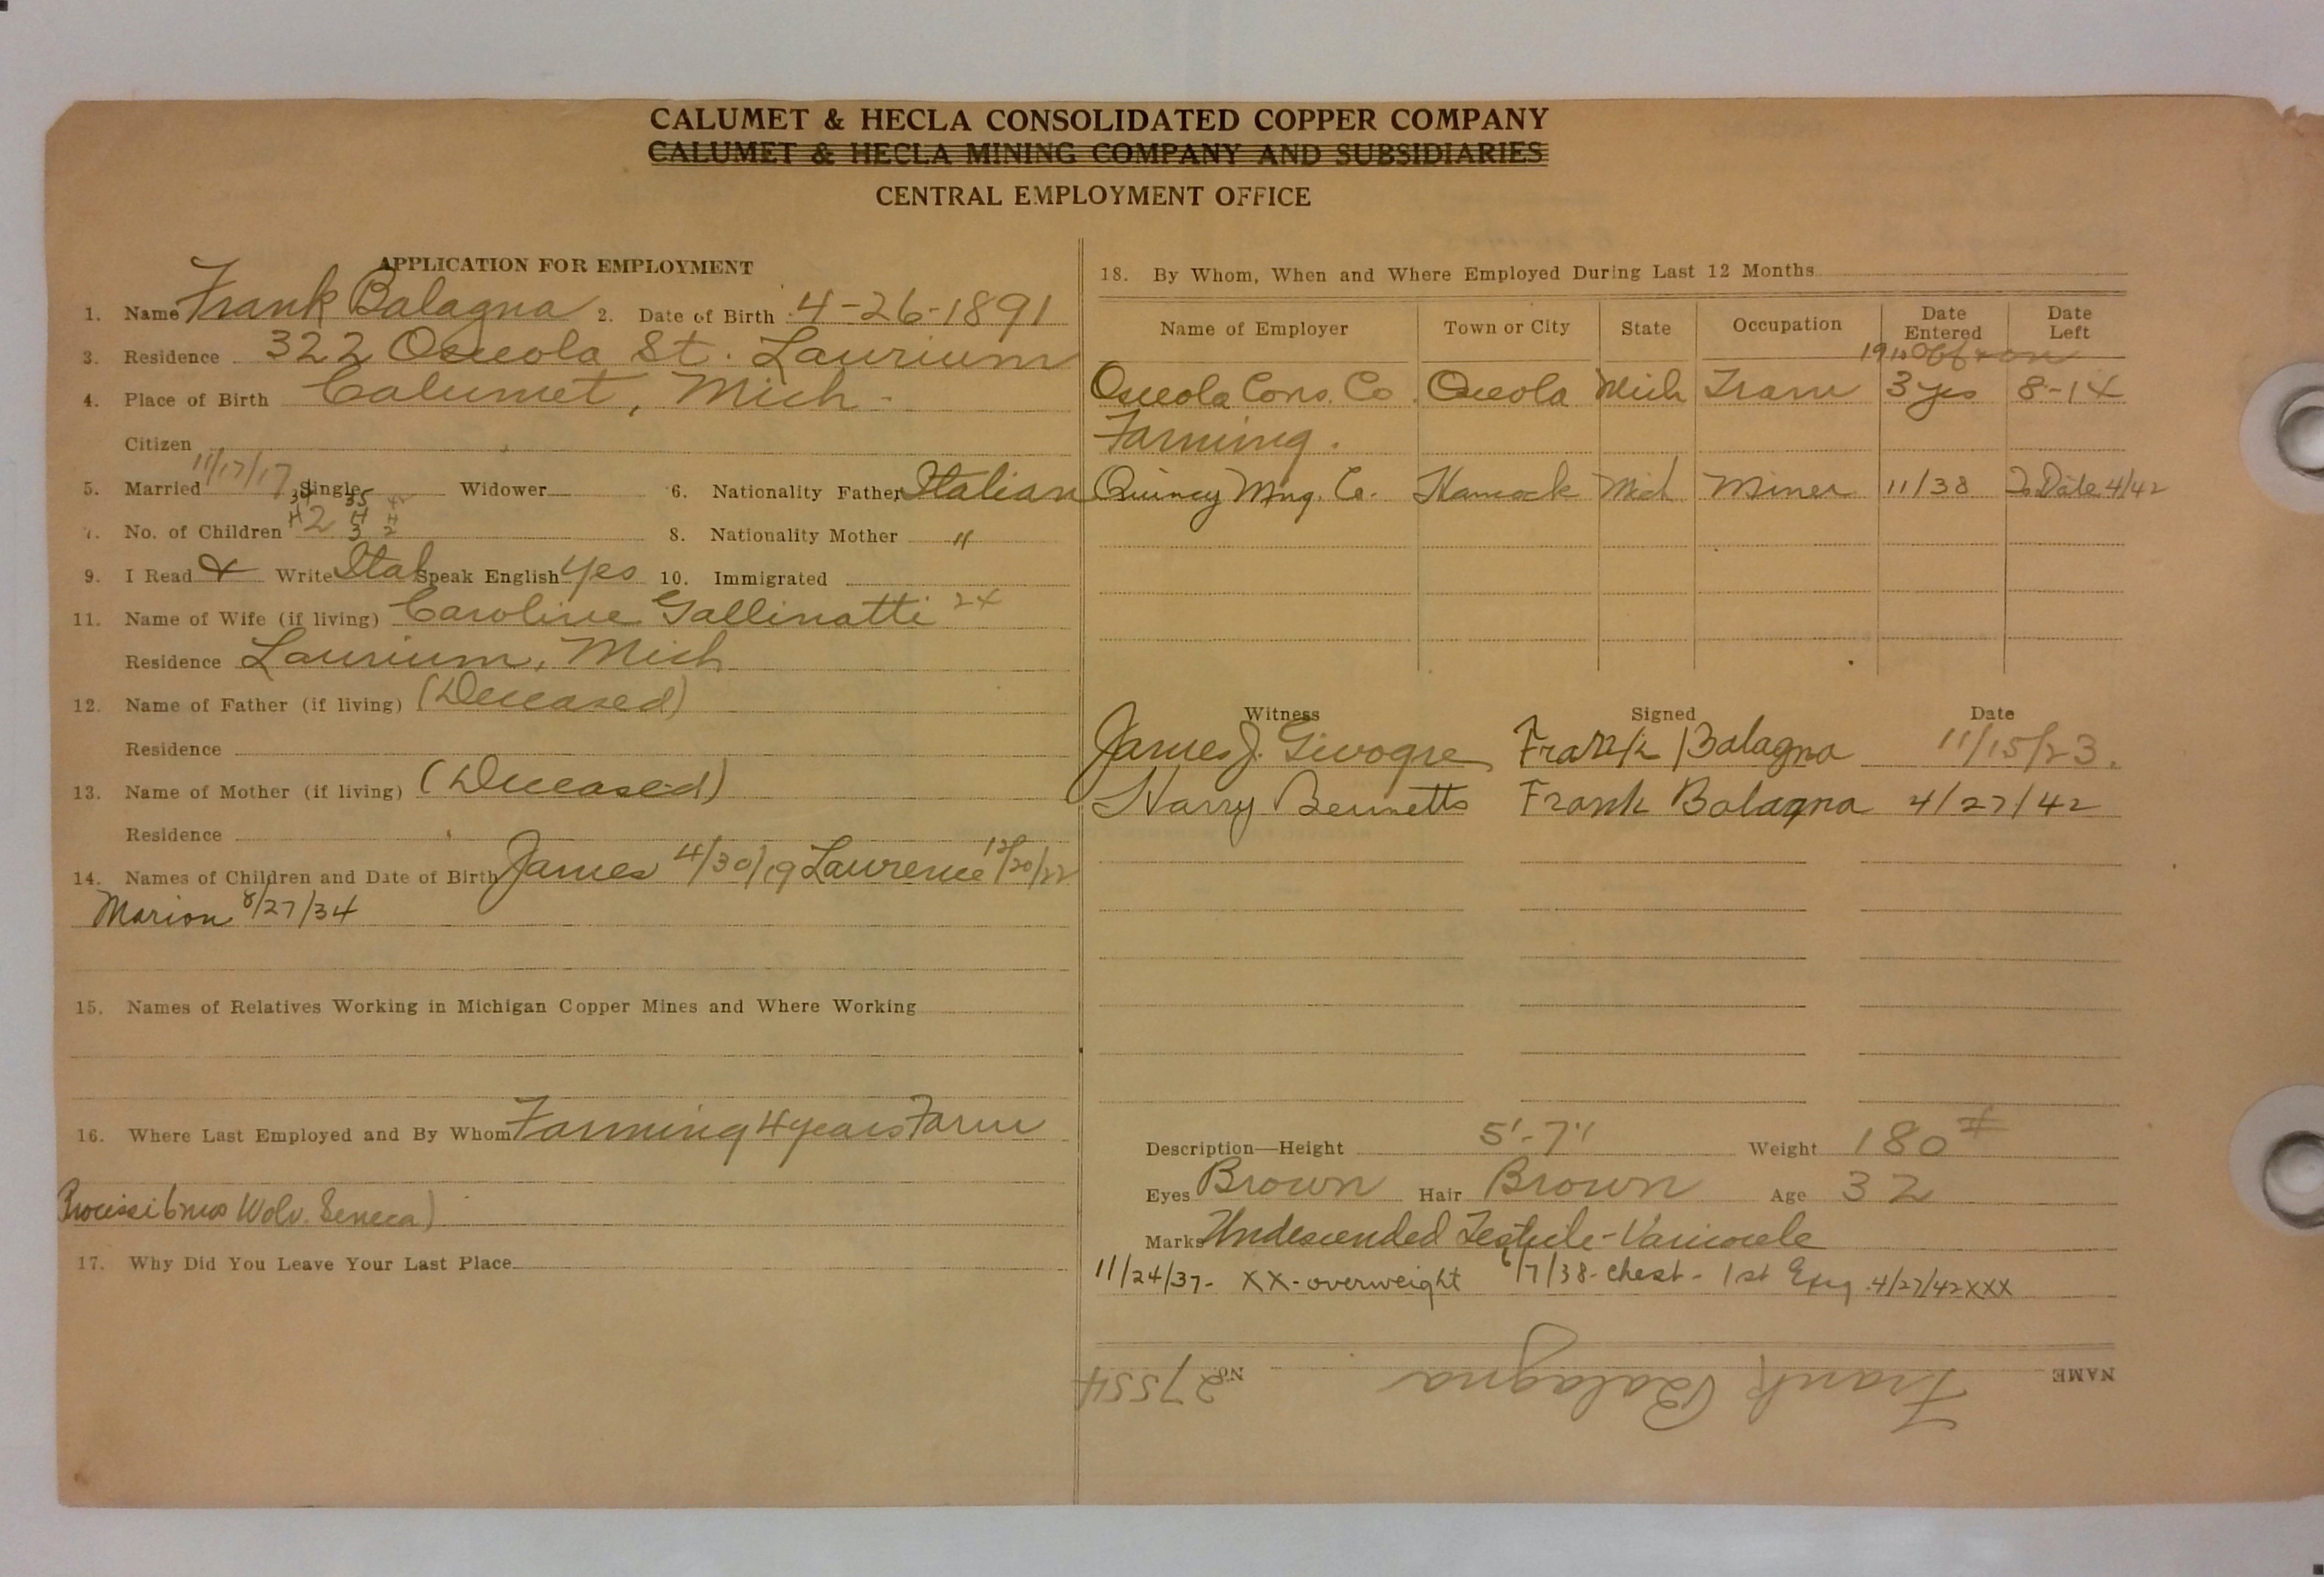 CALUMET & HECLA CONSOLIDATED COPPER COMPANY
CALUMET & HECLA MINING COMPANY AND SUBSIDIARIES
CENTRAL EMPLOYMENT OFFICE
APPLICATION FOR EMPLOYMENT
1. Name Frank Balagna 2. Date of Birth 4-26-1891
3. Residence 322 Osceola St. Laurium
4. Place of Birth Calumet, Mich.
Citizen
5. Married 11/17/17 Single Widower 6. Nationality Father Italian
7. No. of Children 2 8. Nationality Mother "
9. I Read & Write Ital Speak English Yes 10. Immigrated
11. Name of Wife (if living) Caroline Gallinatti 24
Residence Laurium, Mich
12. Name of Father (if living) (Deceased)
Residence
13. Name of Mother (if living) (Deceased)
Residence
14. Names of Children and Date of Birth James 4/30/19 Laurence 12/20/22
Marion 8/27/34
15. Names of Relatives Working in Michigan Copper Mines and Where Working
16. Where Last Employed and By Whom Farming 4 years Farm
Wolv. Seneca)
17. Why Did You Leave Your Last Place
18. By Whom, When and Where Employed During Last 12 Months
Name of Employer Town or City State Occupation Date Entered Date Left
1910 off & on
Osceola Cons. Co. Osceola Mich Tram 3 yrs 8-14
Farming.
Quincy Mng. Co. Hancock Mich Miner 11/38 To Date 4/42
Witness Signed Date
James J. Frank Balagna 11/15/23.
Harry Bennetts Frank Balagna 4/27/42
Description—Height 5'-7" Weight 180#
Eyes Brown Hair Brown Age 32
Marks Undescended Testicle-Varicocele
11/24/37- XX-overweight 6/7/38-chest- 1st 4/27/42XXX
NAME Frank Balagna No. 27554